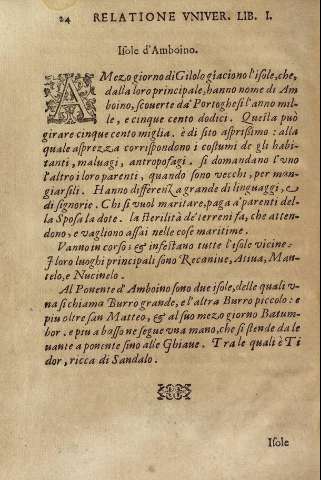 24 RELATIONE VNIVER. LIB. I.
Isole d'Amboino.
A Mezo giorno di Gilolo giaciono l'isole, che,
dalla loro principale, hanno nome di Am
boino, scouerte da' Portoghesi l'anno mil-
le, e cinque cento dodici. Questa può
girare cinque cento miglia. è di sito asprissimo: alla
quale asprezza corrispondono i costumi de gli habi-
tanti, maluagi, antropofagi. si domandano l'vno
l'altro i loro parenti, quando sono vecchi, per man-
giarsili. Hanno differenza grande di linguaggi, e
di signorie. Chi si vuol maritare, paga a' parenti del-
la Sposa la dote. la sterilità de' terreni fa, che atten-
dono, e vagliono assai nelle cose maritime.
Vanno in corso; & infestano tutte l'isole vicine.
I loro luoghi principali sono Recaniue, Atiua, Man-
telo, e Nucinelo.
Al Ponente d'Amboino sono due isole, delle quali v-
na si chiama Burro grande, e l'altra Burro piccolo: e
piu oltre san Matteo, & al suo mezo giorno Batum-
bor. e piu a basso ne segue vna mano, che si stende da le
uante a ponente sino alle Ghiaue. Tra le quali è Ti
dor, ricca di Sandalo.
Isole